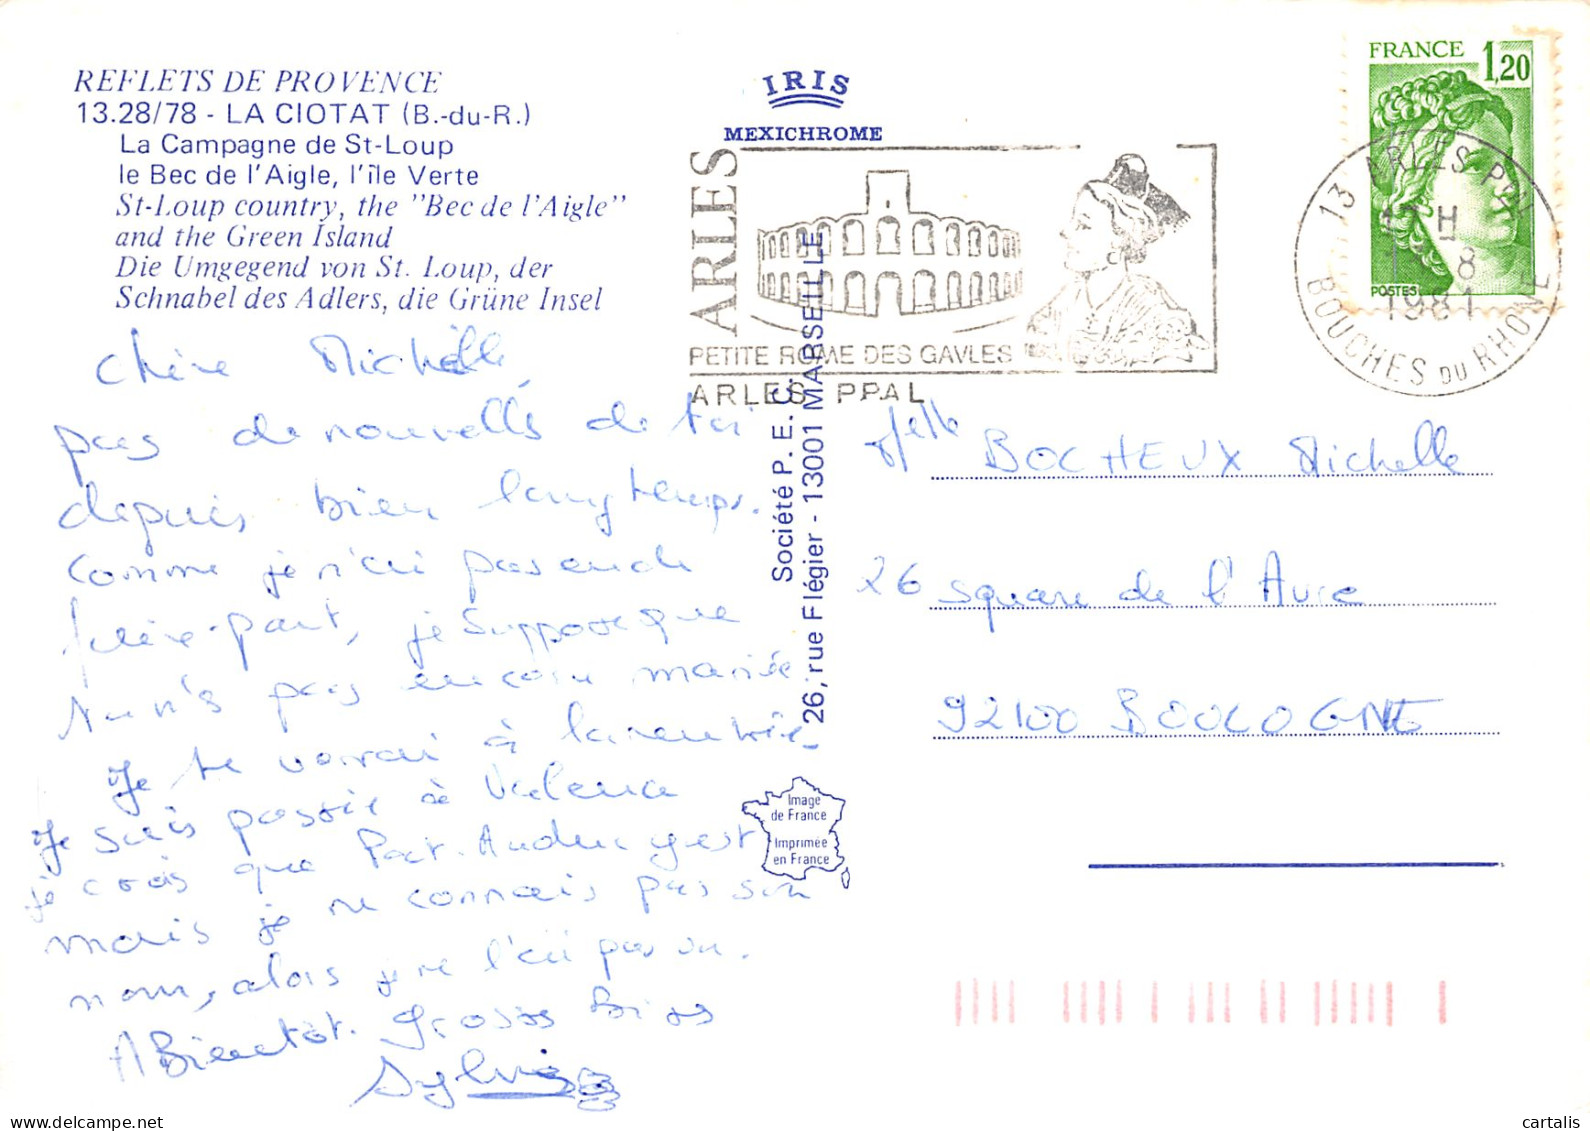 REFLETS DE PROVENCE
13.28/78 - LA CIOTAT (B.-du-R.)
La Campagne de St-Loup
le Bec de l'Aigle, l'île Verte
St-Loup country, the "Bec de l'Aigle"
and the Green Island
Die Umgegend von St. Loup, der
Schnabel des Adlers, die Grüne Insel
Chère Michelle,
pas de nouvelles de toi
depuis bien longtemps.
Comme je n'ai pas eu de
faire-part, je suppose que
tu n'es pas encore mariée
Je te verrai à la rentrée
Je suis passée à Valence
je crois que Pat. y est
mais je ne connais pas son
nom, alors je ne l'ai pas vu.
A Bientôt. Grosses bises
Sylvie
IRIS
MEXICHROME
ARLES
PETITE ROME DES GAVLES
ARLES PPAL
Société P. E. C.
26, rue Flégier - 13001 MARSEILLE
Image
de France
Imprimée
en France
FRANCE 1,20
POSTES
13 ARLES PPAL
H
8
1981
BOUCHES DU RHONE
Melle BOCHEUX Michelle
26 square de l'Avre
92100 BOULOGNE
cartalis
delcampe.net